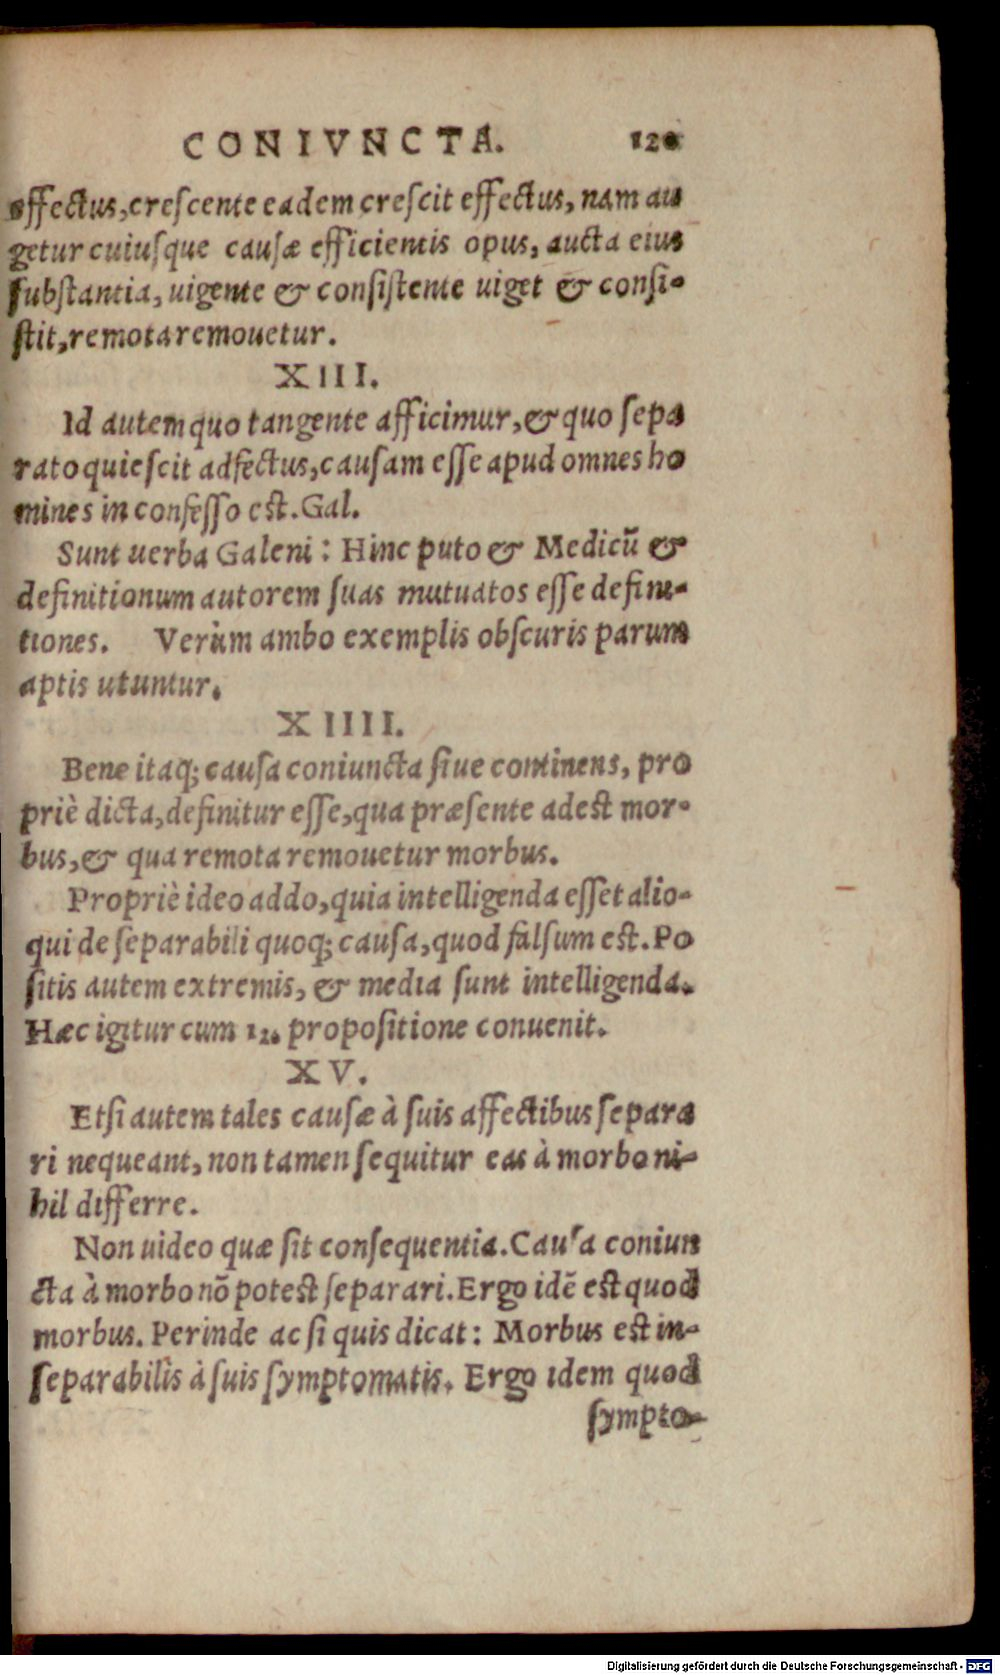 CONIVNCTA. 120
effectus, crescente eadem crescit effectus, nam au
getur cuiusque causæ efficientis opus, aucta eius
substantia, uigente & consistente uiget & consi-
stit, remota remouetur.
XIII.
Id autem quo tangente afficimur, & quo sepa
rato quiescit adfectus, causam esse apud omnes ho
mines in confesso est. Gal.
Sunt uerba Galeni: Hinc puto & Medicū &
definitionum autorem suas mutuatos esse defini-
tiones. Verùm ambo exemplis obscuris parum
aptis utuntur.
XIIII.
Bene itaq; causa coniuncta siue continens, pro
priè dicta, definitur esse, qua præsente adest mor-
bus, & qua remota remouetur morbus.
Propriè ideo addo, quia intelligenda esset alio-
qui de separabili quoq; causa, quod falsum est. Po
sitis autem extremis, & media sunt intelligenda.
Hæc igitur cum 12. propositione conuenit.
XV.
Etsi autem tales causæ à suis affectibus separa
ri nequeant, non tamen sequitur eas à morbo ni-
hil differre.
Non uideo quæ sit consequentia. Causa coniun
cta à morbo nō potest separari. Ergo idē est quod
morbus. Perinde ac si quis dicat: Morbus est in-
separabilis à suis symptomatis. Ergo idem quod
sympto-
Digitalisierung gefördert durch die Deutsche Forschungsgemeinschaft - DFG